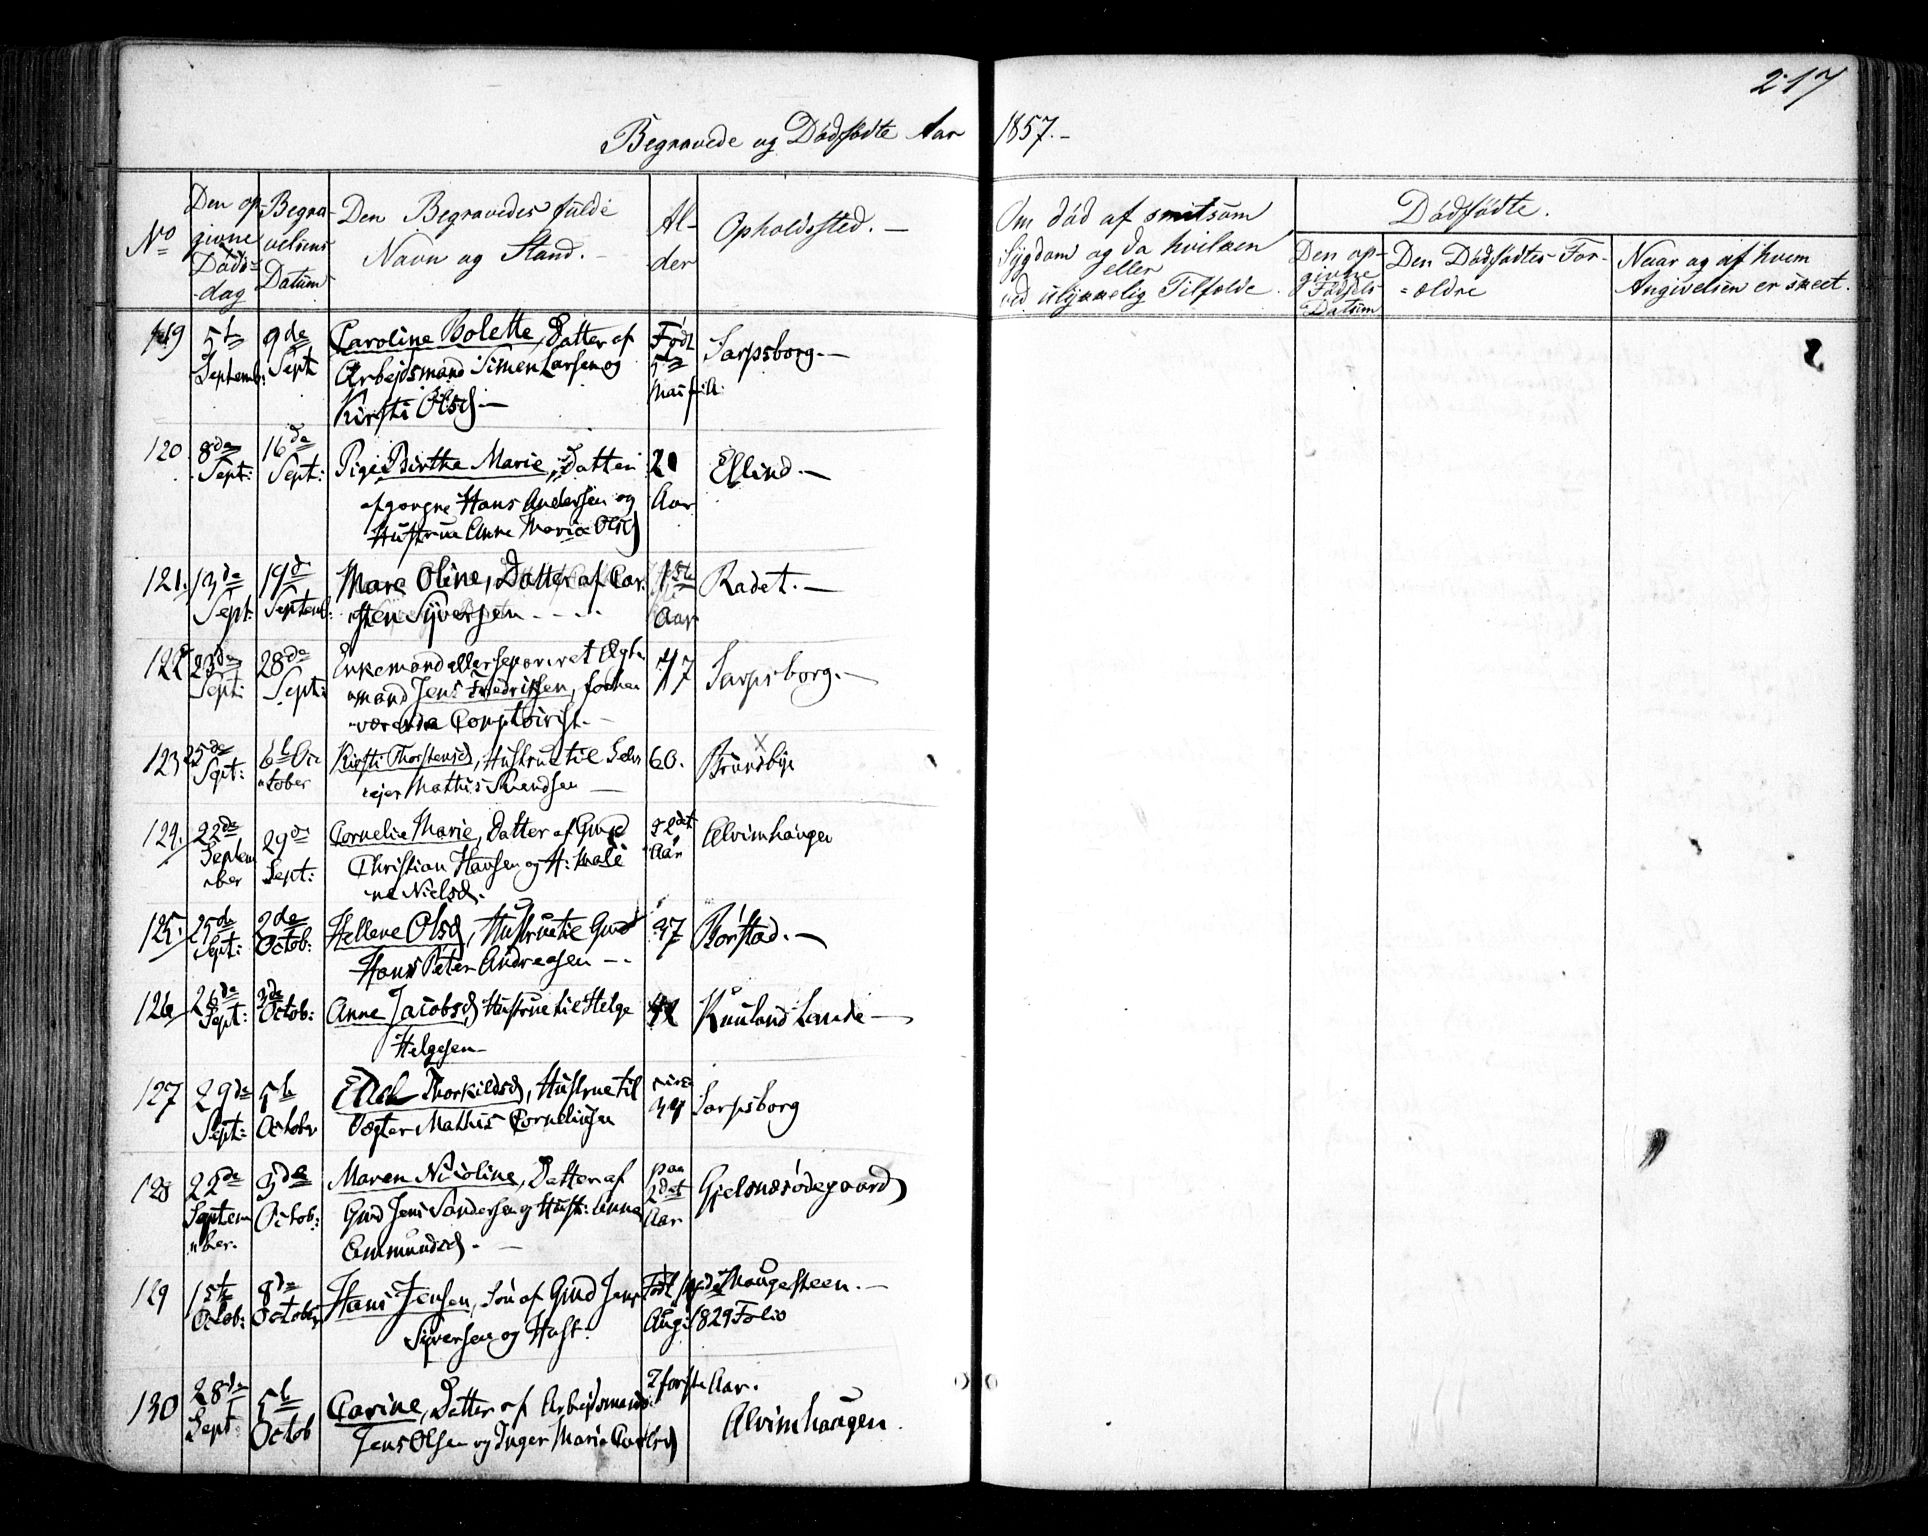 217
Begravede og Dødfødte Aar 1857.-
No
Den op-
givne
Døds-
dag
Begra-
velsens
Datum
Den Begravedes fulde
Navn og Stand.-
Al-
der
Opholdssted.-
Om død af smitsom
Sygdom og da hvilken
eller
ved ulykkelig Tilfælde.
Dødfødte.
Den op-
givne
Fødsels
Datum
Den Dødfødtes For-
-ældre
Naar og af hvem
Angivelsen er skeet.
119 5te Septemb: 9de Sept Caroline Bolette, Datter af Født 5te Sarpsborg.-
Arbejdsmand Simen Larsen og
Kirsti Olsd -
120 8de Sept: 16de Sept: Pige Birthe Marie, Datter 20 Aar Ellind.-
afgangne Hans Andersen og
Hustrue Anne Marie Olsd
121. 13de Sept 19de Septemb: Mare Oline, Datter af Car- 1ste Aar Radet.-
sten Syversen
122 23de Sept: 28de Sept: Enkemand eller separeret Egte- 47 Sarpsborg.-
mand Jens Fredriksen, forhen
-værende Comptoirist.-
123 25de Sept: 6te October Kirsti Thorstensd, Hustrue til Selv- 60. Brunsbye
ejer Mathis
124. 22de September 29de Sept: Cornelie Marie, Datter af Gmd 2det Aar Alvimhaugen
Christian Hansen og H: Male
ne Nielsd.
125. 25de Sept: 2de Octob: Hellene Olsd, Hustrue til Gmd 37 Borstad.-
Hans Peter Andreasen -
126 26de Sept: 3de Octob: Anne Jacobsd Hustrue til Helge 42
Helgesen -
127 29de Sept: 5te October Thorkildsd, Hustrue til Sarpsborg
Vogter Mathis Corneliusen
128 22de September. 3de Octob: Maren Nicoline, Datter af paa 2det Aar Gjelsnæsødegaard
Gmd Jens Sandersen og Hust: Anne
Ammundsd.-
129 1ste Octob: 8de October Hans Jensen, Søn af Gmd Jens Født Haugesteen.-
Syversen og Hust: Aug: 1829 Folio
130 28de Sept: 5te Octob Carine, Datter af Arbejdsmand 2 første Aar. Alvimhaugen.
Jens Olsen og Inger Marie